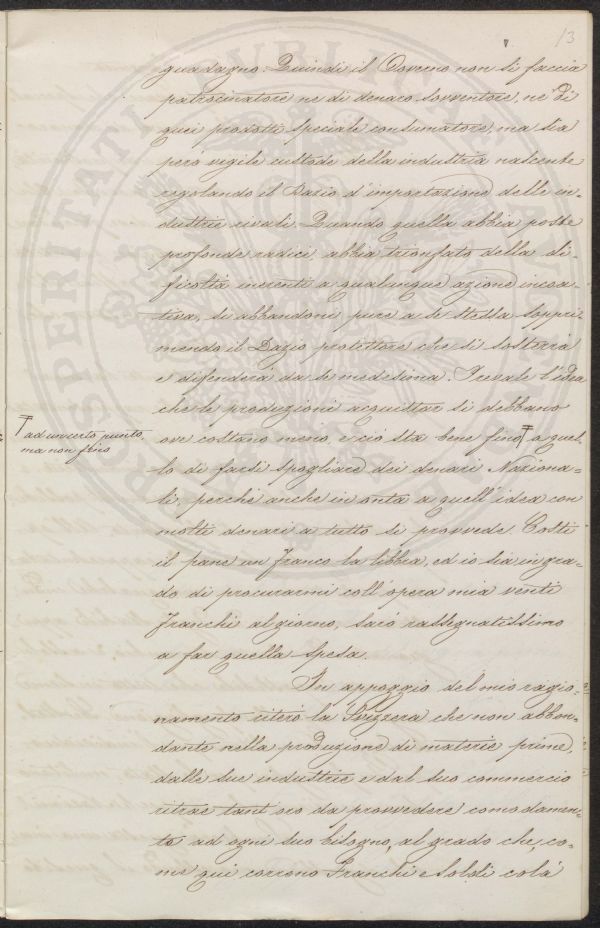 13
guadagno: Quindi il Governo non si faccia
patrocinatore nè di denaro sovventore, nè di
quei prodotti speciali consumatore, ma sia
però vigile custode della industria nascente
regolando il Dazio d'importazione delle in=
dustrie rivali. Quando quella abbia poste
profonde radici, abbia trionfato della di=
ficoltà inerenti a qualunque azione incoa=
tiva, si abbandoni pure a se stessa soppri
mendo il Dazio protettore che si sosterrà
e difenderà da se medesima. Prevale l'idea
che le produzioni acquistar si debbano
ove costano meno, e ciò sta bene fino a quel=
ad un certo punto,
ma non fino
lo di farsi spogliare dei denari Naziona=
li; perchè anche in onta a quell'idea con
molti denari a tutto si provvede. Costi
il pane un Franco la libbra, ed io sia in gra=
do di procurarmi coll'opera mia venti
Franchi al giorno, sarò rassegnatissimo
a far quella spesa.
In appoggio del mio ragio=
namento citerò la Svizzera che non abbon=
dante nella produzione di materie prime,
dalle sue industrie e dal suo commercio
ritrae tant'oro da provvedere comodamen=
te ad ogni suo bisogno, al grado che, co=
me qui corrono Franchi e Soldi colà